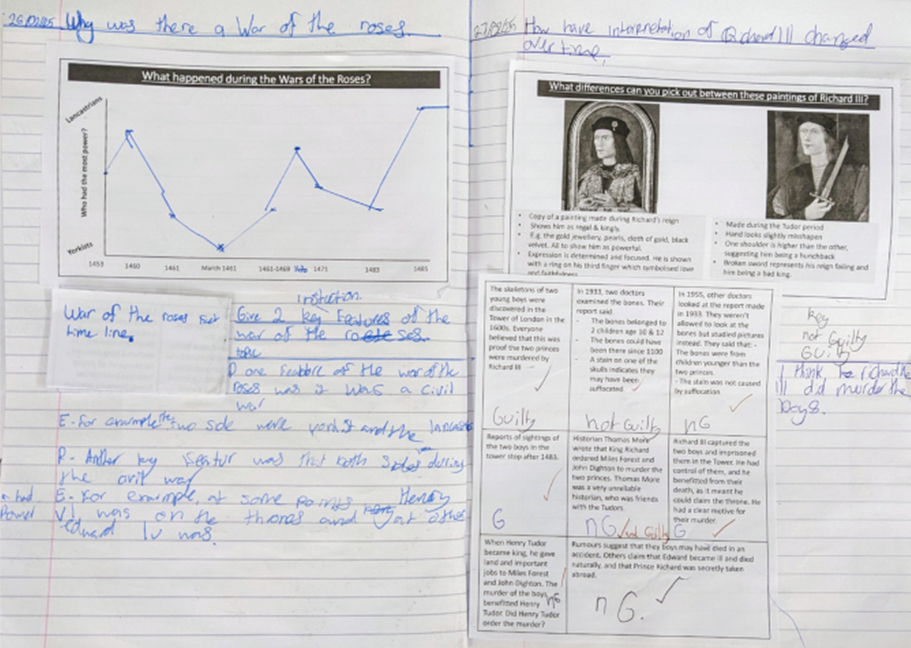 26/02/25 Why was there a War of the roses.
What happened during the Wars of the Roses?
Lancastrians
Who had the most power?
Yorkists
1453
1460
1461
March 1461
1461-1469
1471
1483
1485
War of the roses
time line.
Give 2 key features of the
war of the roses.
one of the war of the
roses was it was a civil
war
E-For the two side were and the
P- key was that both sides during
the civil war
E- For example, at some points Henry
VI was on the and at other
edward IV was.
How have interpretation of Richard III changed
over time.
What differences can you pick out between these paintings of Richard III?
• Copy of a painting made during Richard's reign
• Shows him as regal & kingly.
• E.g. the gold jewellery, pearls, cloth of gold, black
velvet. All to show him as powerful.
• Expression is determined and focused. He is shown
with a ring on his third finger which symbolised love
and faithfulness
• Made during the Tudor period
• Hand looks slightly misshapen
• One shoulder is higher than the other,
suggesting him being a hunchback
• Broken sword represents his reign failing and
him being a bad king.
The skeletons of two
young boys were
discovered in the
Tower of London in
the 1600s. Everyone
believed that this was
proof the two princes
were murdered by
Richard III
Guilty
In 1933, two doctors
examined the bones. Their
report said:
- The bones belonged to
2 children age 10 & 12
- The bones could have
been there since 1100
- A stain on one of the
skulls indicates they
may have been
suffocated.
not Guilty
In 1955, other doctors
looked at the report made
in 1933. They weren't
allowed to look at the
bones but studied pictures
instead. They said that: -
- The bones were from
children younger than the
two princes.
- The stain was not caused
by suffocation
nG
key
not Guilty
Guilty
I think richard the
III did murder the
boys.
Reports of sightings of
the two boys in the
tower stop after 1483.
G
Historian Thomas More
wrote that King Richard
ordered Miles Forest and
John Dighton to murder the
two princes. Thomas More
was a very unreliable
historian, who was friends
with the Tudors.
nG
Richard III captured the
two boys and imprisoned
them in the Tower. He had
control of them, and he
benefitted from their
death, as it meant he
could claim the throne. He
had a clear motive for
their murder.
G
When Henry Tudor
became king, he gave
land and important
jobs to Miles Forest
and John Dighton. The
murder of the boys
benefitted Henry
Tudor. Did Henry Tudor
order the murder?
nG
Rumours suggest that they boys may have died in an
accident. Others claim that Edward became ill and died
naturally, and that Prince Richard was secretly taken
abroad.
nG.